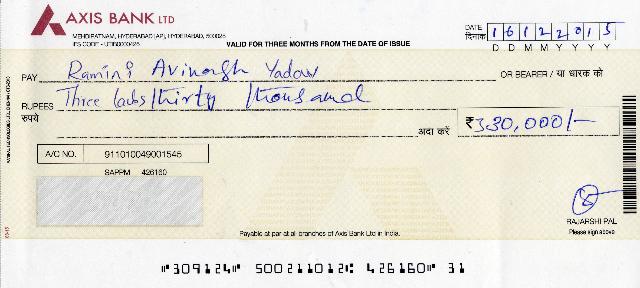 AXIS BANK LTD
MEHDIPATNAM, HYDERABAD [AP], HYDERABAD, 500028
IFS CODE - UTIB0000426
VALID FOR THREE MONTHS FROM THE DATE OF ISSUE
DATE दिनांक 16122015
D D M M Y Y Y Y
PAY Ramini Avinash Yadav OR BEARER / या धारक को
RUPEES Three lakhs thirty thousand
रुपये अदा करें ₹ 3,30,000/-
A/C NO. 911010049001545
SAPPM 426160
RAJARSHI PAL
Please sign above
Payable at par at all branches of Axis Bank Ltd in India.
"309124" 500211012: 426160" 31